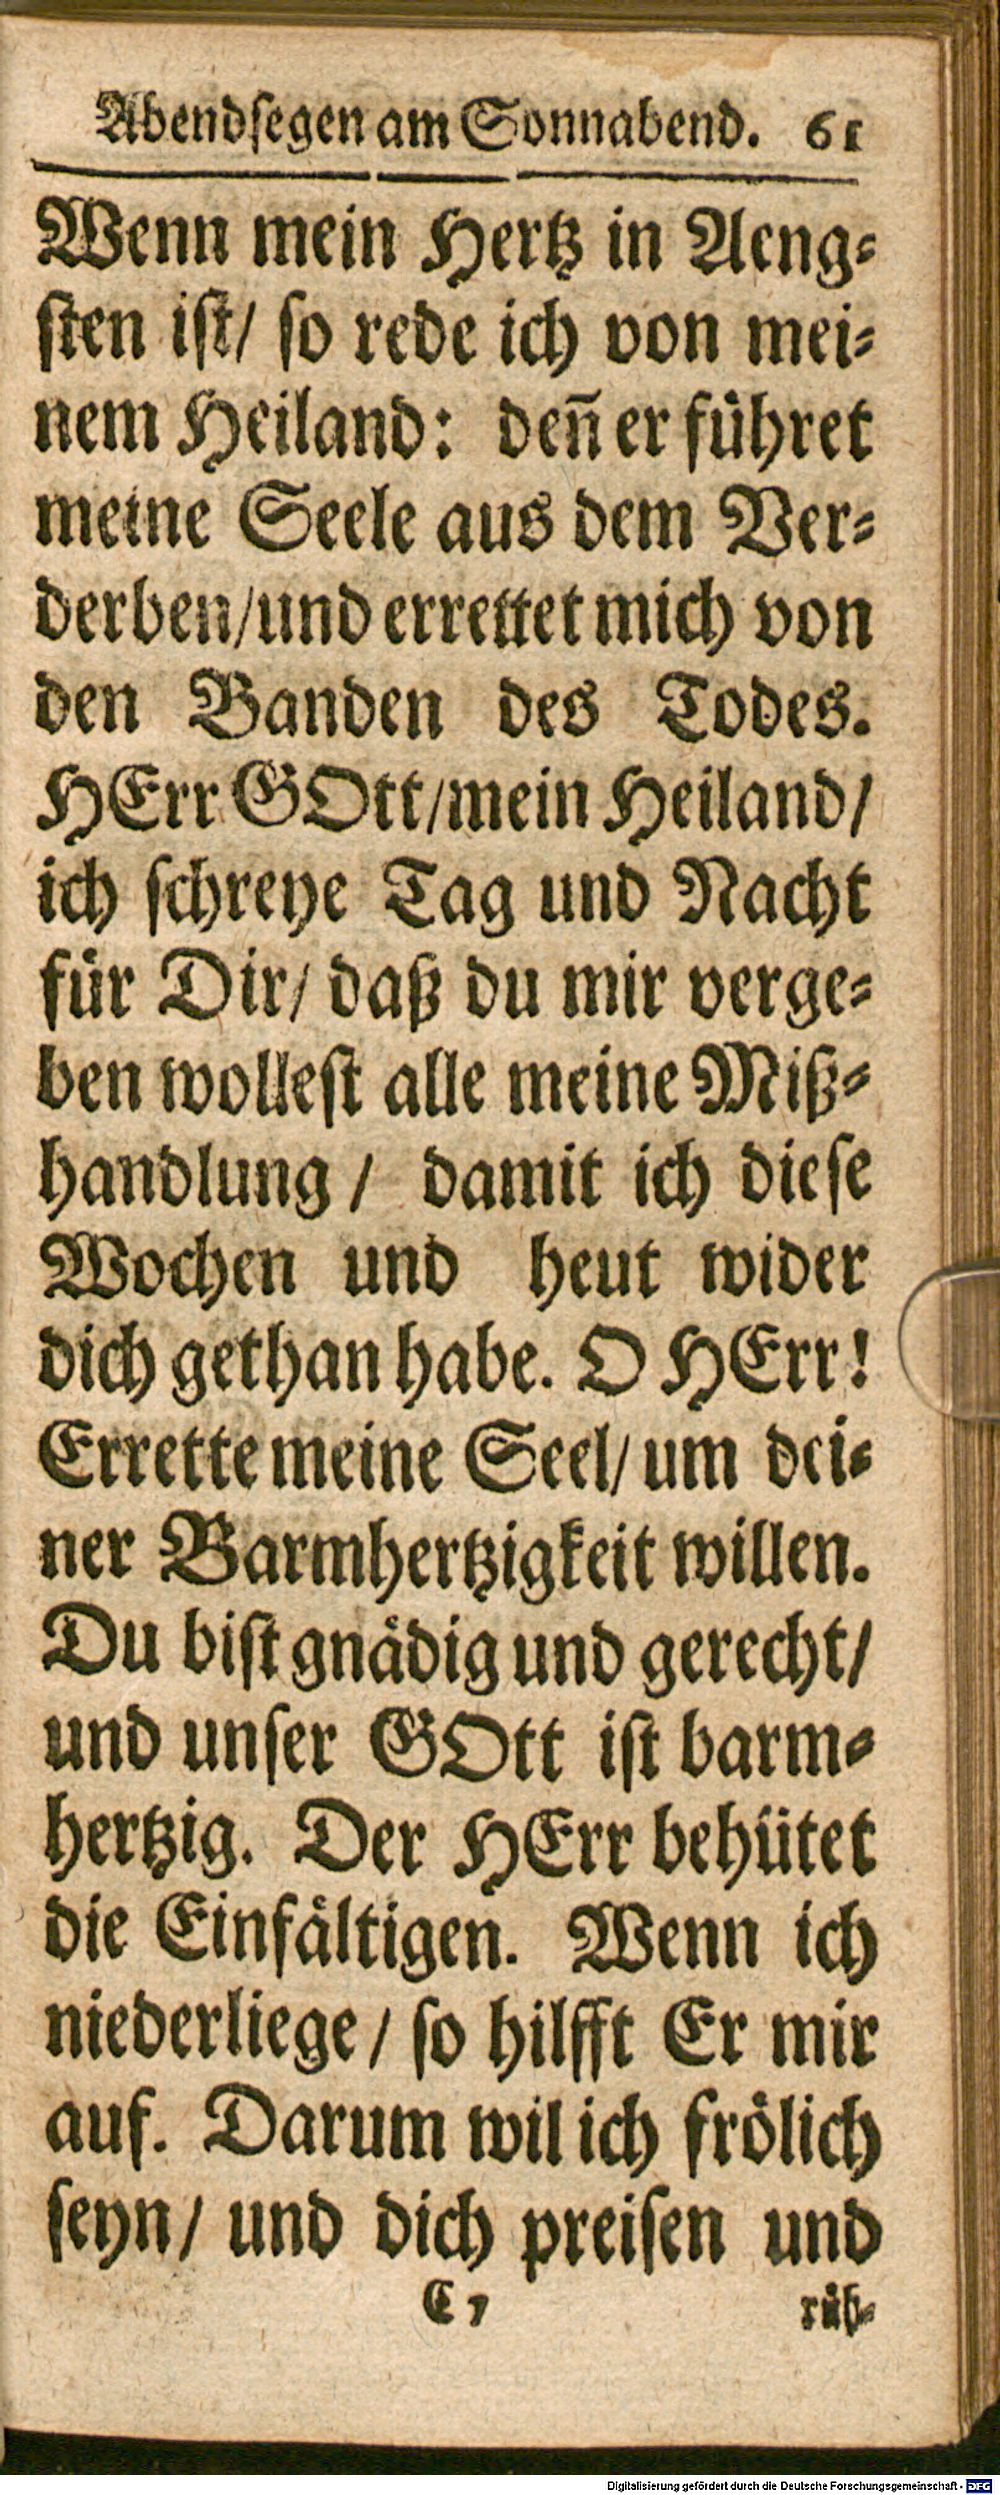 Abendsegen am Sonnabend. 61
Wenn mein Hertz in Aeng-
sten ist/ so rede ich von mei-
nem Heiland: deñ er führet
meine Seele aus dem Ver-
derben/und errettet mich von
den Banden des Todes.
HErr GOtt/mein Heiland/
ich schreye Tag und Nacht
für Dir/ daß du mir verge-
ben wollest alle meine Miß-
handlung / damit ich diese
Wochen und heut wider
dich gethan habe. O HErr!
Errette meine Seel/ um dei-
ner Barmhertzigkeit willen.
Du bist gnädig und gerecht/
und unser GOtt ist barm-
hertzig. Der HErr behütet
die Einfältigen. Wenn ich
niederliege / so hilfft Er mir
auf. Darum wil ich frölich
seyn/ und dich preisen und
C 7 rüh-
Digitalisierung gefördert durch die Deutsche Forschungsgemeinschaft - DFG